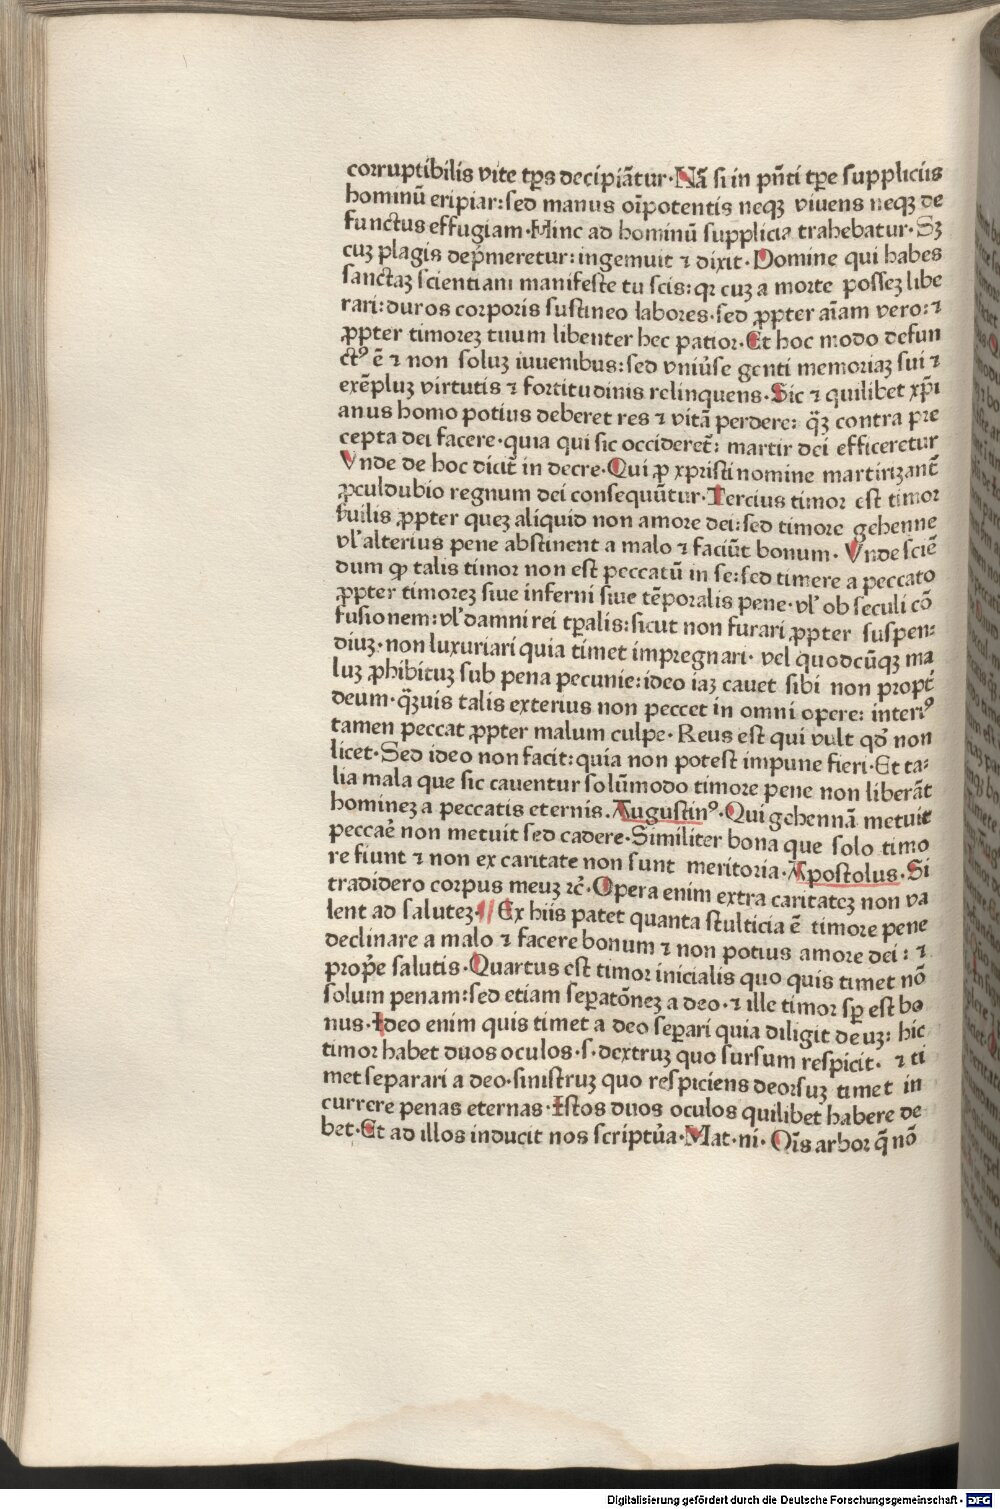 corruptibilis vite tp̄s decipiāt᷑ur·Nā si in pn̄ti tp̄e suppliciis
hominū eripiar:sed manus oīpotentis neqꝫ viuens neqꝫ de
functus effugiam·Hinc ad hominū supplicia trahebatur·Sꝫ
cuꝫ plagis dep̄meretur:ingemuit ⁊ dixit·Domine qui habes
sanctaꝫ scientiam manifeste tu scis:qꝛ cuꝫ a morte posseꝫ libe
rari:duros corporis sustineo labores·sed ꝓpter aīam vero:⁊
ꝓpter timoreꝫ tuum libenter hec patior·Et hoc modo defun
ctꝰ ē ⁊ non soluꝫ iuuenibus:sed vniũse genti memoriaꝫ sui ⁊
exēpluꝫ virtutis ⁊ fortitudinis relinquens·Sic ⁊ quilibet xp̄i
anus homo potius deberet res ⁊ vitā perdere: q̄ꝫ contra pre
cepta dei facere·quia qui sic occideret᷑: martir dei efficeretur
Vnde de hoc dicit᷑ in decre·Qui ꝓ xpristi nomine martirizant᷑
ꝓculdubio regnum dei consequūtur·Tercius timor est timor
ẜuilis ꝓpter queꝫ aliquid non amore dei:sed timore gehenne
vl̓ alterius pene abstinent a malo ⁊ faciūt bonum· Vnde sciē
dum ꝙ talis timor non est peccatū in se:sed timere a peccato
ꝓpter timoreꝫ siue inferni siue tēporalis pene·vl̓ ob seculi cō
fusionem:vl̓ damni rei tp̄alis:sicut non furari ꝓpter suspen:
diuꝫ·non luxuriari quia timet impregnari· vel quodcūqꝫ ma
luꝫ ꝓhibituꝫ sub pena pecunie:ideo iaꝫ cauet sibi non propt̓
deum·q̄ꝫuis talis exterius non peccet in omni opere: interiꝰ
tamen peccat ꝓpter malum culpe·Reus est qui vult qd̓ non
licet·Sed ideo non facit:quia non potest impune fieri·Et ta:
lia mala que sic cauentur solūmodo timore pene non liberāt
homineꝫ a peccatis eternis.Augustinꝰ·Qui gehennā metuit
peccae̓ non metuit sed cadere·Similiter bona que solo timo
re fiunt ⁊ non ex caritate non sunt meritoria·Apostolus·Si
tradidero corpus meuꝫ ⁊c̄·Opera enim extra caritateꝫ non va
lent ad saluteꝫ·Ex hiis patet quanta stulticia ē timore pene
declinare a malo ⁊ facere bonum ⁊ non potius amore dei: ⁊
prop̄e salutis·Quartus est timor inicialis quo quis timet nō
solum penam:sed etiam sep̄atōneꝫ a deo·⁊ ille timor sp̄ est bo
nus·Ideo enim quis timet a deo sep̄ari quia diligit deuꝫ: hic
timor habet duos oculos·s·dextruꝫ quo sursum respicit· ⁊ ti
met separari a deo·sinistruꝫ quo respiciens deorsuꝫ timet in
currere penas eternas·Istos duos oculos quilibet habere de
bet·Et ad illos inducit nos scriptũa·Mat·ni· Oīs arbor q̄ nō
Digitalisierung gefördert durch die Deutsche Forschungsgemeinschaft · DFG